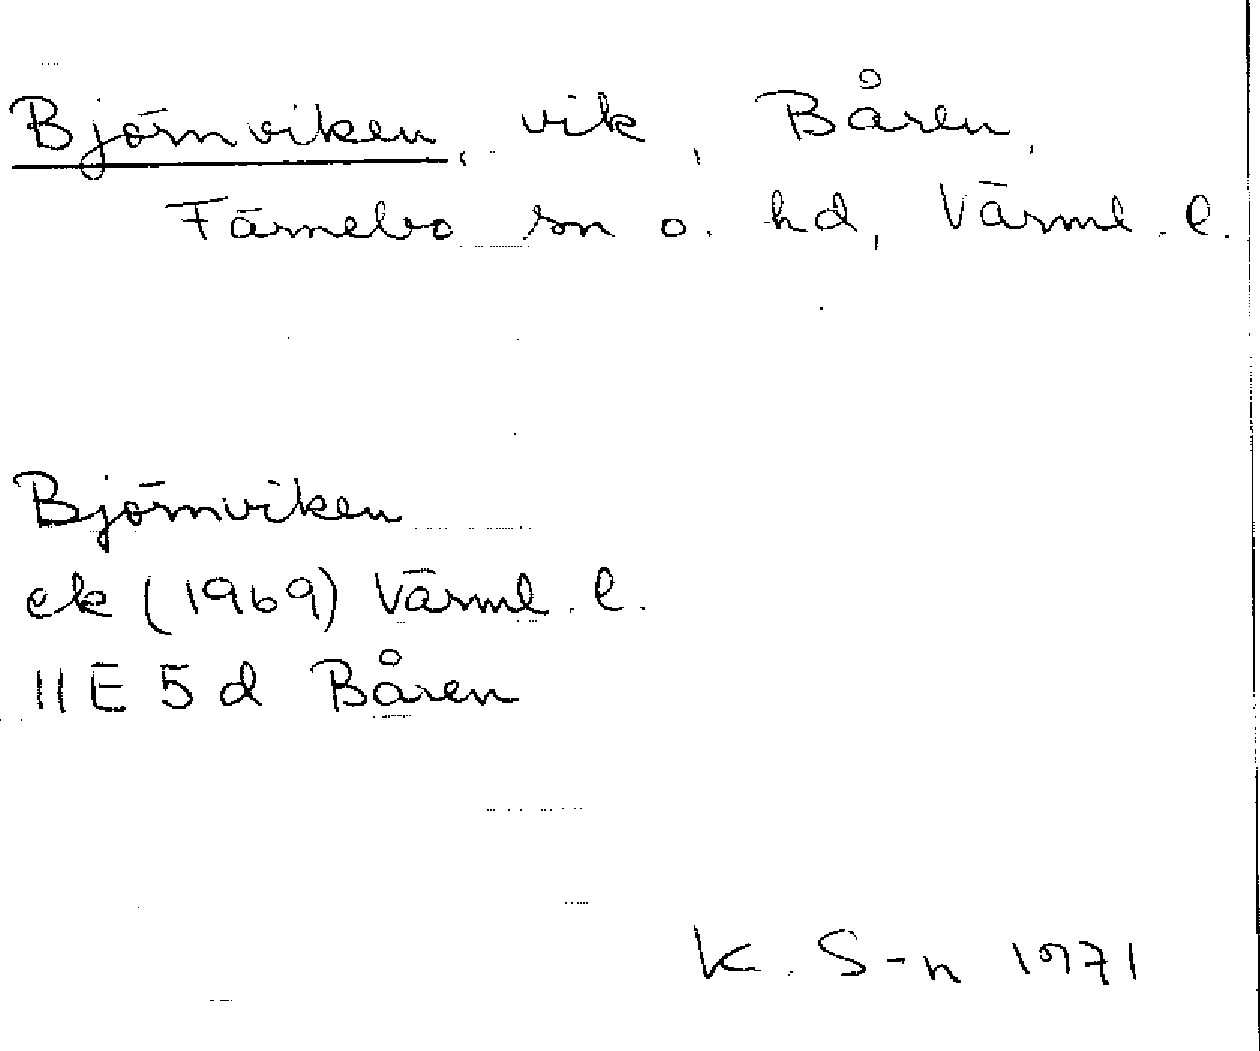 Björnviken, vik, Båren,
Färnebo sn o. hd, Värml. l.
Björnviken
ek (1969) Värml. l.
11E 5d Båren
K. S-n 1971